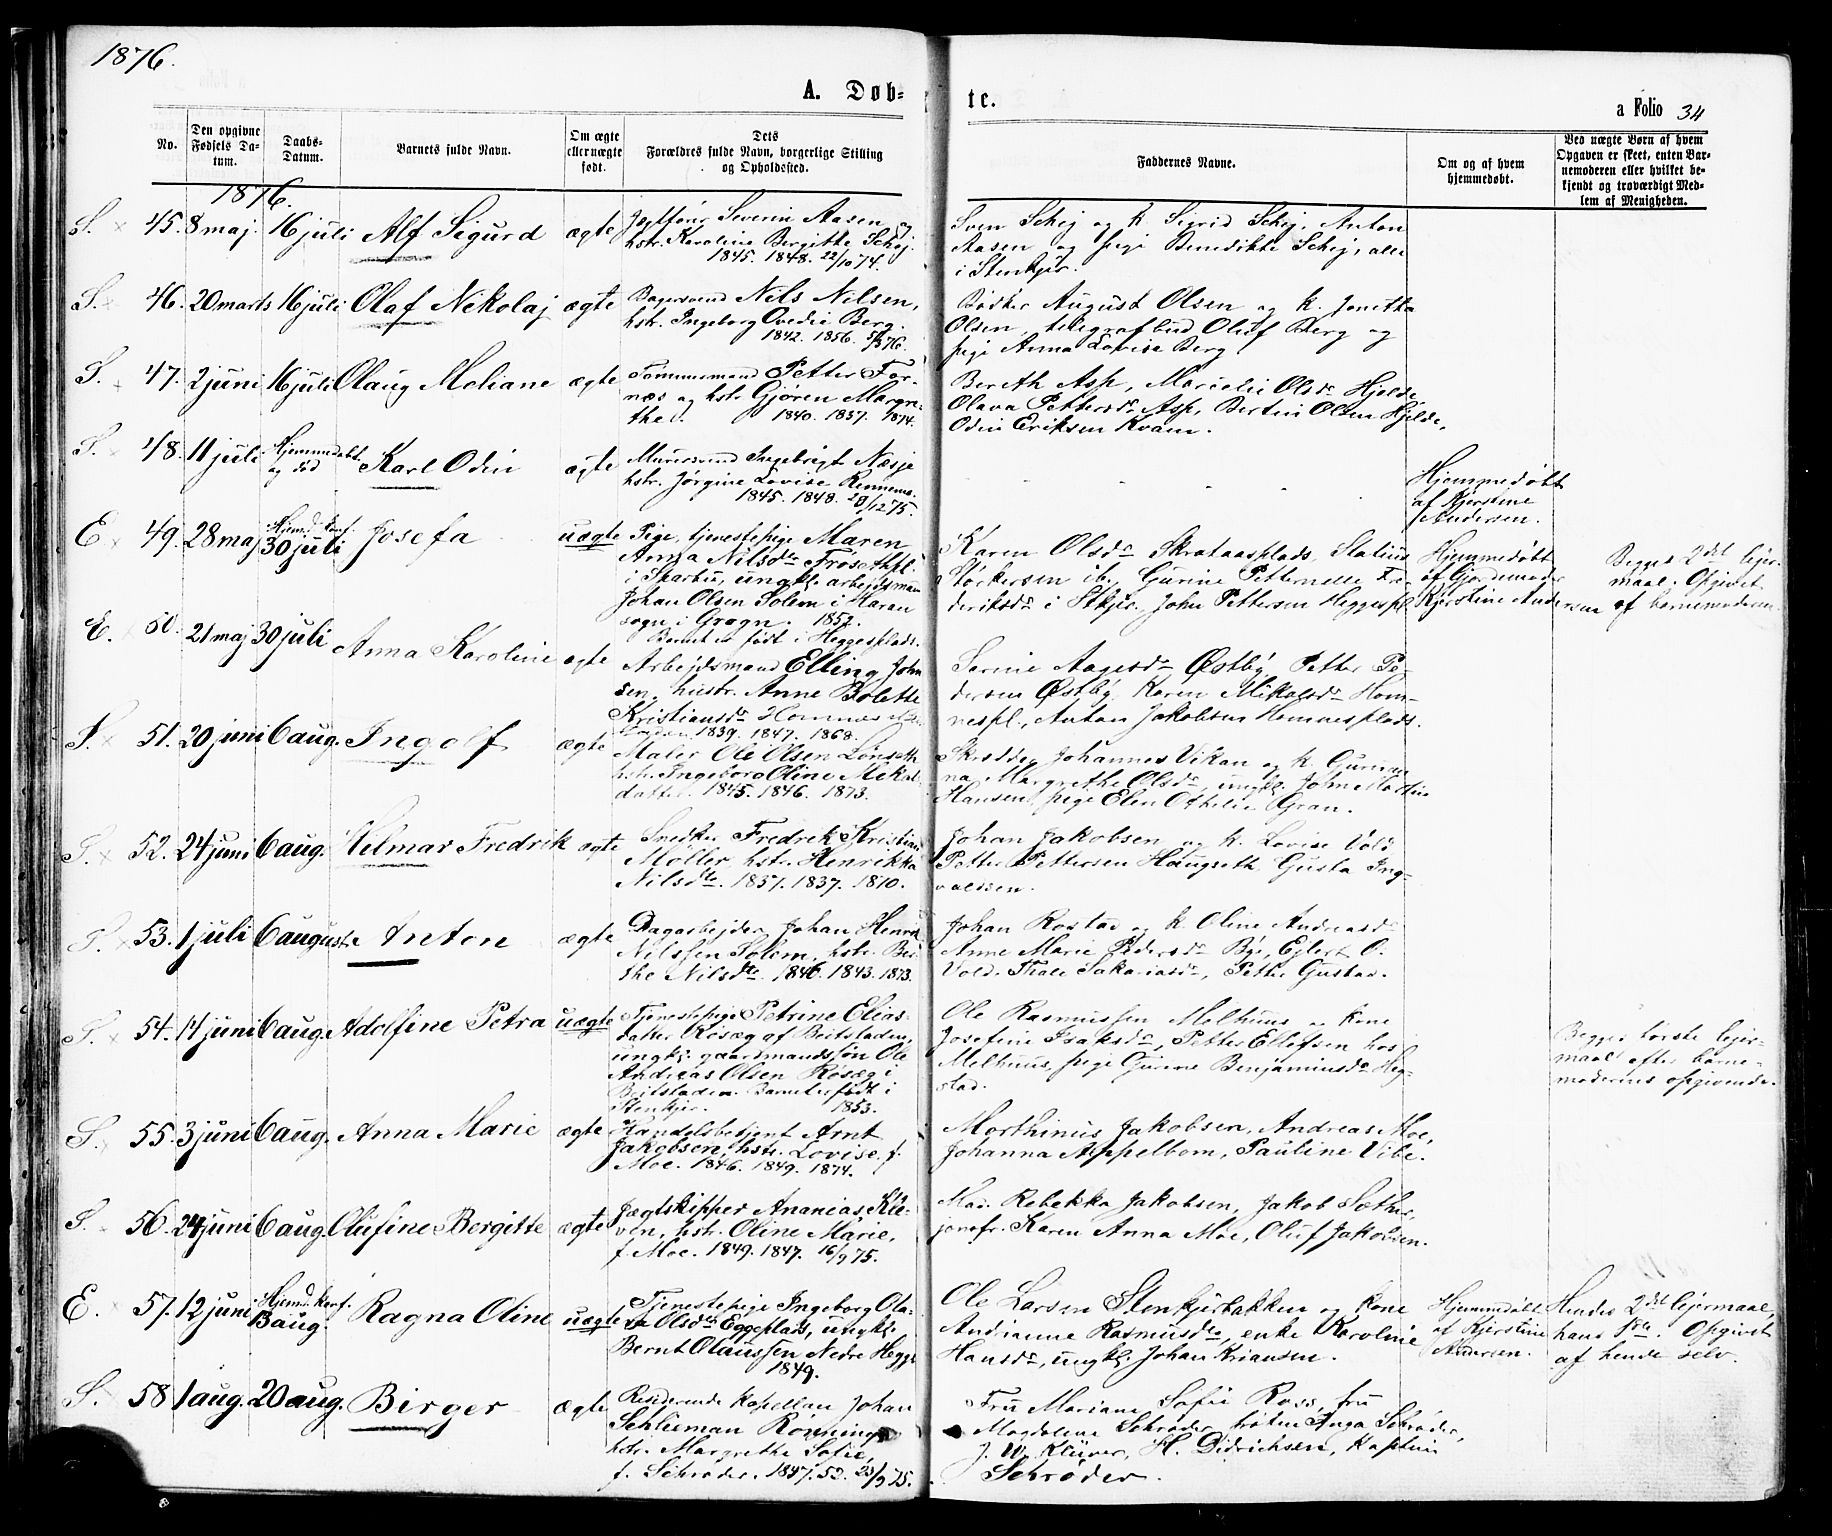 1876.
A. Døb-
te.
a Folio 34
No.
Den opgivne
Fødsels Da-
tum.
Daabs-
Datum.
Barnets fulde Navn.
Om ægte
eller uægte
født.
Dets
Forældres fulde Navn, borgerlige Stilling
og Opholdssted.
Faddernes Navne.
Om og af hvem
hjemmedøbt.
Ved uægte Børn af hvem
Opgaven er skeet, enten Bar-
nemoderen eller hvilket be-
kjendt og troværdigt Med-
lem af Menigheden.
1876.
S. × 45. 8 maj. 16 juli Alf Sigurd ægte
Severin Aasen og
hstr. Karoline Bergitte Schej.
1845. 1848. 22/10 74.
Sven Schej og k. Sigrid Schej, Anton
Aasen og pige Benedikte Schej, alle
i Stenkjær.
S. × 46. 20 marts 16 juli Olaf Nikolaj ægte
Bagersvend Nils Nilsen,
hstr. Ingeborg Ovedie Berg.
1842. 1856. 5/3 76.
Bødker August Olsen og k. Jonetta
Olsen, telegrafbud Oluf Berg og
pige Anna Lovise Berg.
S. × 47. 2 juni 16 juli Olaug Meliane ægte
Tømmermand Petter For-
næs og hstr. Gjøren Margre-
the. 1840. 1837. 1874.
Bereth Asp, Olsdr Hjelde,
Olava Pettersdr Asp, Bertin Olsen Hjelde,
Odin Eriksen Kvam.
S. 48. 11 juli Hjemmedøbt
og død Karl Odin ægte
Murersvend Ingebrigt Næsje
hstr. Jørgine Lovise Rennemo.
1845. 1848. 28/12 75.
Hjemmedøbt
af Kjerstine
Andersen.
E × 49. 28 maj Hjemd. konf.
30 juli Josefa uægte
Pige, tjenestepige Maren
Anna Nilsdtr Frøsethpl.
i Sparbu, ungkl. arbejdsmand
Johan Olsen Solem i Haran
sogn i Grogn. 1852.
Barnet er født i Heggesplads.
Karen Olsdr Skrataasplads, Statius
Størkersen ib., Gurine Petternelle Fre-
deriksdr i Stkjær. John Pettersen Heggespl.
Hjemmedøbt
af Gjordemoder
Kjerstine Andersen
Begges 2det lejer-
maal. Opgivet
af barnemoderen.
E. × 50. 21 maj 30 juli Anna Karoline ægte
Arbejdsmand Elling John
sen, hustr. Anne Bolette
Kristiansdr
1839. 1847. 1868.
Serine Aagesdr Østby, Petter Pe-
dersen Østby, Karen Mikalsdr Hom-
nespl., Anton Jakobsen Homnesplads.
S. × 51. 20 juni 6 aug. Ingolf ægte
Maler Ole Olsen Lønseth
hstr. Ingeborg Oline Mikals
datter. 1845. 1846. 1873.
Skrædder Johannes Vikan og k. Gurian-
na Margrethe Olsdr, ungkl. John Martin
Hansen, pige Elen Othelie Gran.
S. × 52. 24 juni 6 aug. Hilmar Fredrik ægte
Snedker Fredrek Kristian
Møller, hstr. Henrikka
Nilsdtr. 1837. 1837. 1870.
Johan Jakobsen og k. Lovise Vold
Petter Pettersen Haugseth Gusta Ing-
valdsen.
S. × 53. 1 juli 6 auguste Anton ægte
Dagarbejder Johan Henrik
Nilssen Solem, hstr. Ber-
the Nilsdtr. 1846. 1843. 1873.
Johan Rostad og k. Oline Andreasdr
Anne Marie Pedersdr Bye, Ejlert O.
Vold. Thale Sakariasdr, Petter Gustad.
S. × 54. 14 juni 6 aug. Adolfine Petra uægte
Tjenestepige Petrine Elias-
datter Røsæg af Beitstaden,
ungkl. gaardmandssøn Ole
Andreas Olsen Røsæg i
Beitstaden. Barnet er født i
Stenkjær. 1853.
Ole Rasmussen Melhuus og kone
Josefine Isaksdr, Petter Ellefsen hos
Melhuus, pige Gurine Benjaminsdr Heg-
stad.
Begges første lejer-
maal efter barne-
moderens opgivende.
S. 55. 3 juni 6 aug. Anna Marie ægte
Handelsbetjent Arnt
Jakobsen, hstr. Lovise f.
Moe. 1846. 1849. 1874.
Morthinus Jakobsen, Andreas Moe,
Johanna Appelbom, Pauline Vibe.
S. × 56. 24 juni 6 aug. Olufine Bergitte ægte
Jægtskipper Ananias Klø-
ven, hstr. Oline Marie,
f. Moe. 1849. 1847. 16/9 75.
Mad. Rebekka Jakobsen, Jakob Sæther,
jomfr. Karen Anna Moe, Oluf Jakobsen.
E. × 57. 12 juni Hjemd. konf.
13 aug. Ragna Oline uægte
Tjenestepige Ingeborg Ola-
va Olsdtr Eggeplads, ungkl.
Bernt Olaussen Nedre Hegge
1849.
Ole Larsen Stenkjærbakken og kone
Andrianne Rasmusdtr, enke Karoline
Hansdr, ungkl. Johan Kriansen.
Hjemmedøbt
af Kjerstine
Andersen.
Hendes 2det lejermaal,
hans 1ste. Opgivet
af hende selv.
S. × 58 1 aug. 20 aug. Birger ægte
Residerende kapellan Johan
Schlieman Rønning
hstr. Margrethe Sofie,
f. Schrøder. 1847. 52. 23/9 75.
Fru Mariane Sofie Ross, fru
Magdalene Schrøder, frøken Anga Schrøder,
J. W. Klüver, H. Didrichsen, kaptein
Schrøder.